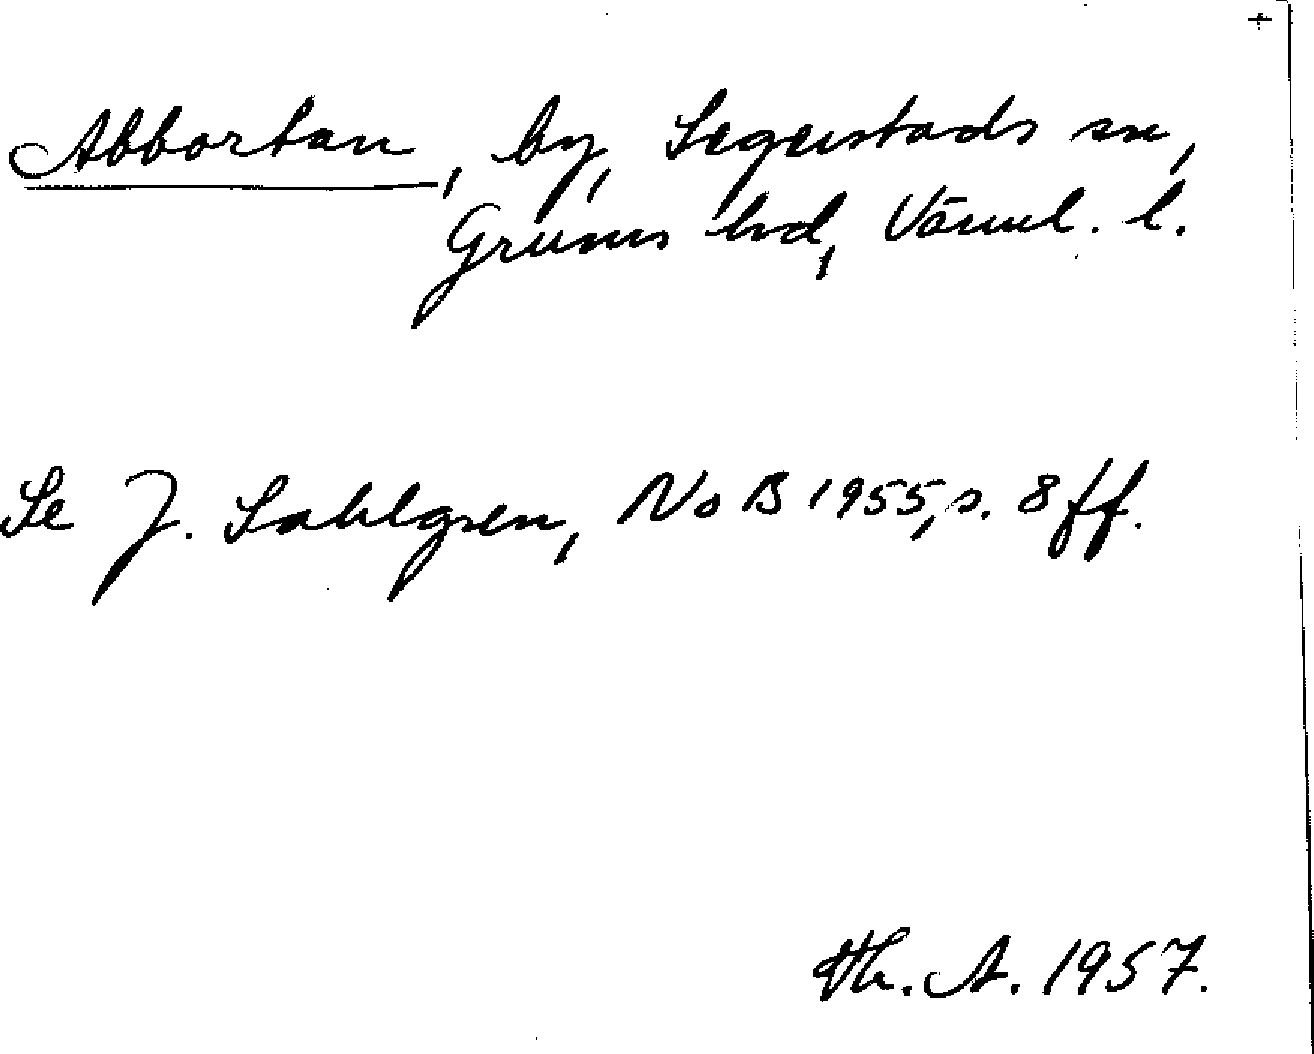 +
Abbortan, by, Segerstads sn,
Grums hd, Värml. l.
Se J. Sahlgren, NoB 1955, s. 8 ff.
Th. A. 1957.